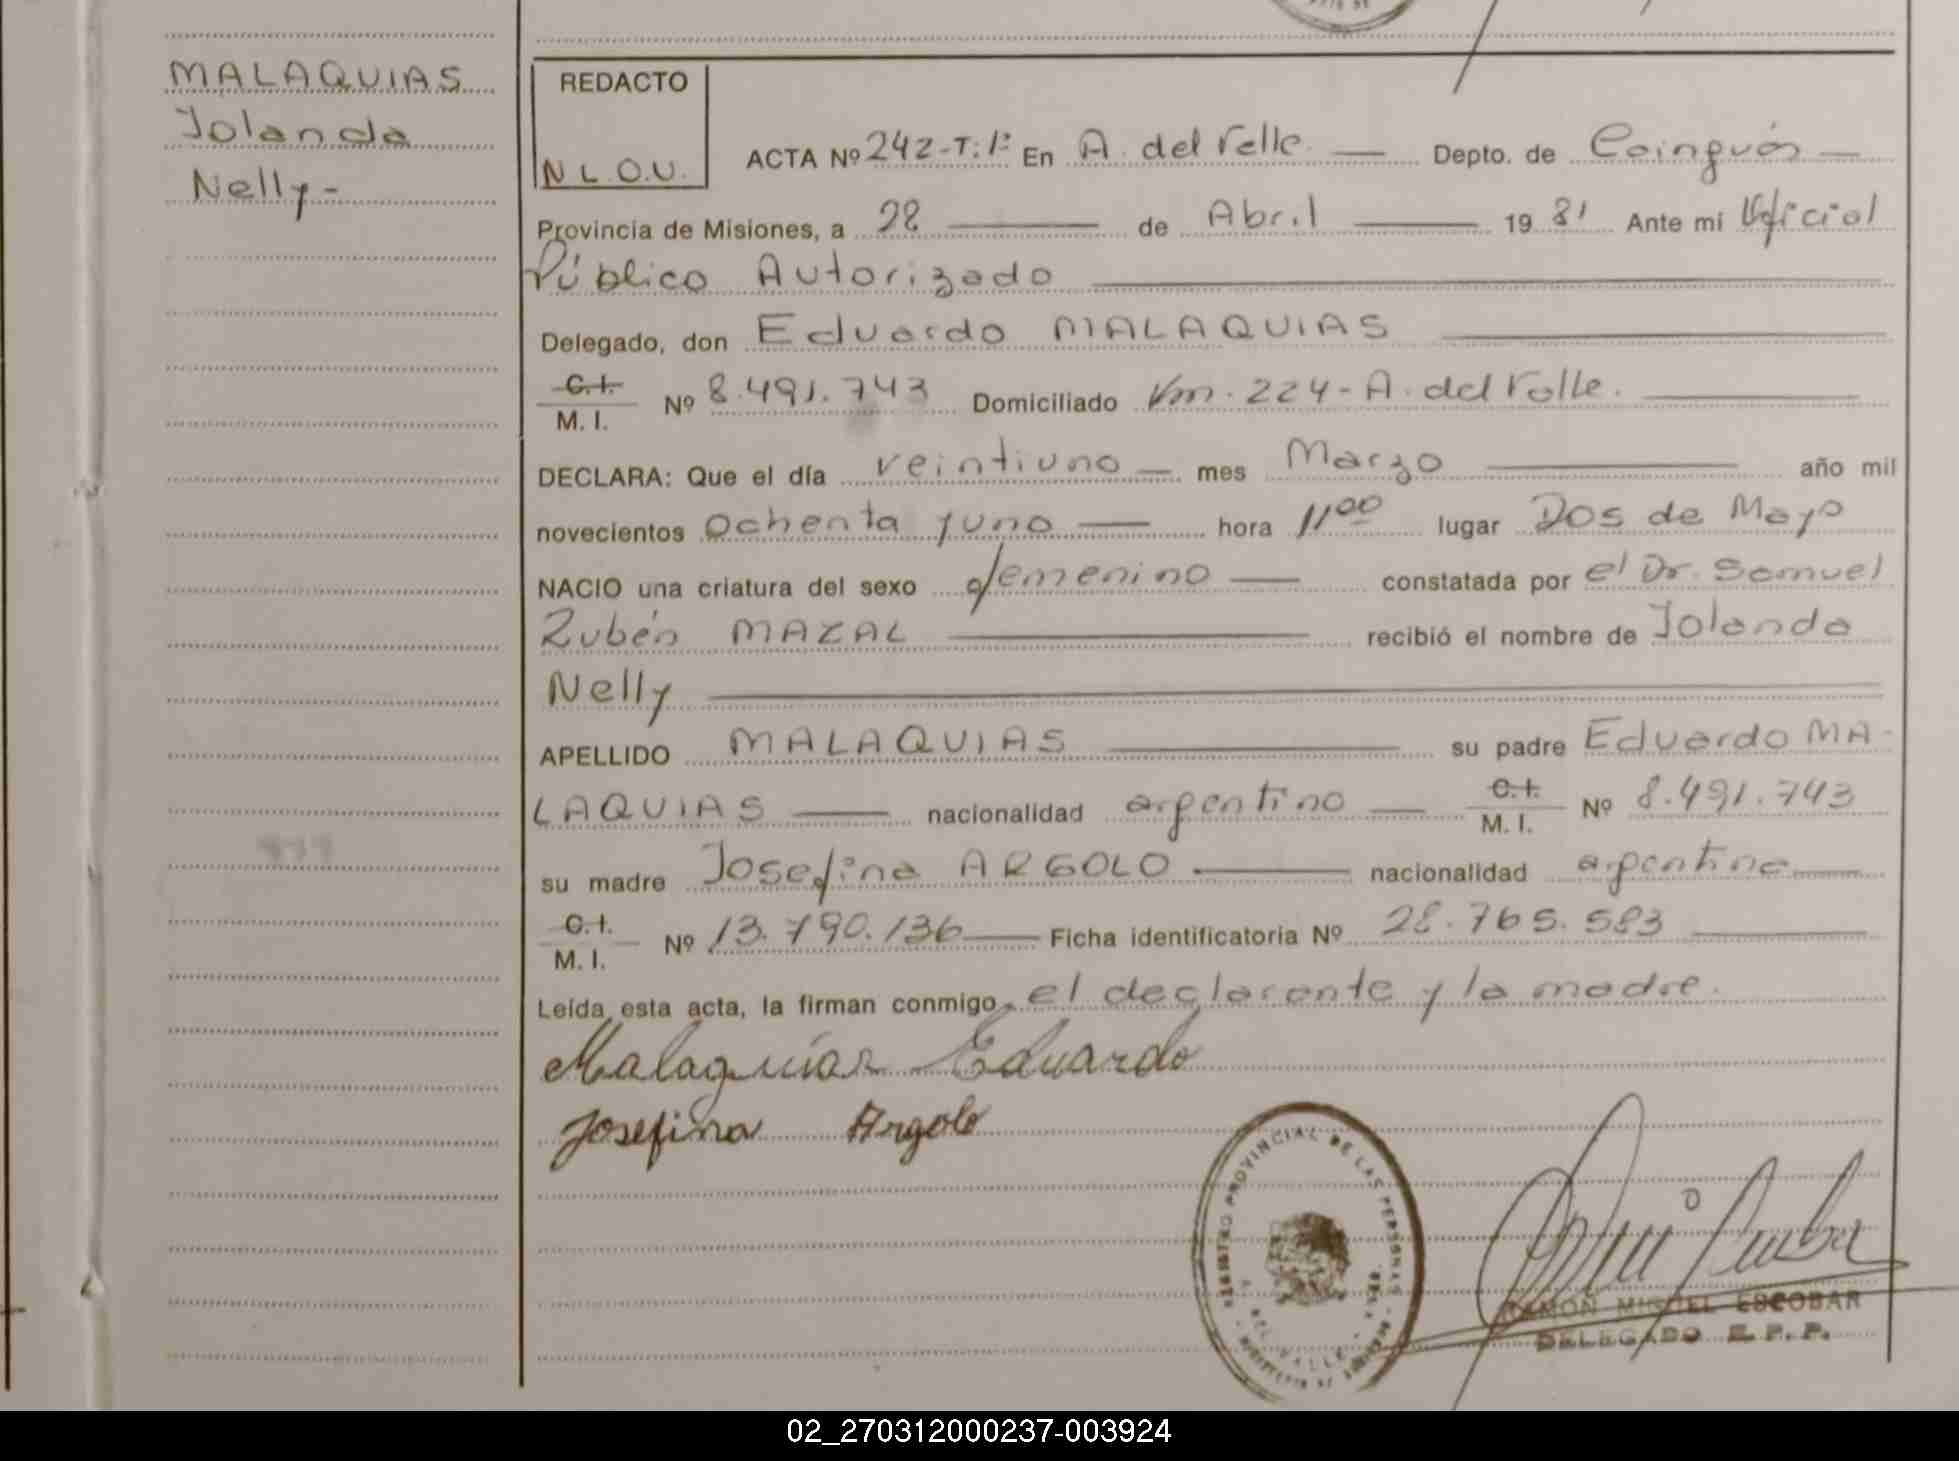 MALAQUIAS
Iolanda
Nelly-
REDACTO
N L.O.U.
ACTA Nº 242-T:1º En A. del Valle. Depto. de Cainguás
Provincia de Misiones, a 28 de Abril 19 81 Ante mi Oficial
Público Autorizado
Delegado, don Eduardo MALAQUIAS
C.I.
M. I. Nº 8.491.743 Domiciliado Km. 224-A. del Valle.
DECLARA: Que el día veintiuno mes Marzo año mil
novecientos ochenta y uno hora 11 00 lugar Dos de Mayo
NACIO una criatura del sexo femenino constatada por el Dr. Samuel
Rubén MAZAL recibió el nombre de Iolanda
Nelly
APELLIDO MALAQUIAS su padre Eduardo MA-
LAQUIAS nacionalidad argentino C.I. M. I. Nº 8.491.743
su madre Josefina ARGOLO nacionalidad argentina
C.I.
M. I. Nº 13.790.136 Ficha identificatoria Nº 28.765.583
Leída esta acta, la firman conmigo, el declarante y la madre.
Malaquias Eduardo
Josefina Argolo
REGISTRO PROVINCIAL DE LAS PERSONAS
A. DEL VALLE
RAMON MIGUEL ESCOBAR
DELEGADO R. P. P.
02_270312000237-003924